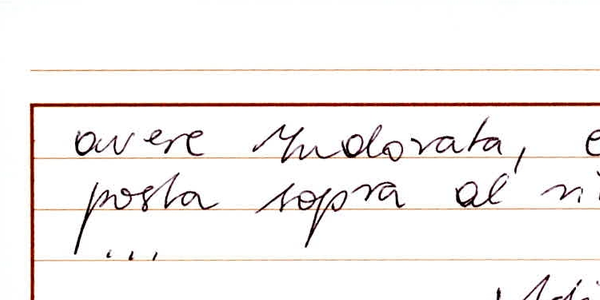 avere indorata,
posta sopra al
...